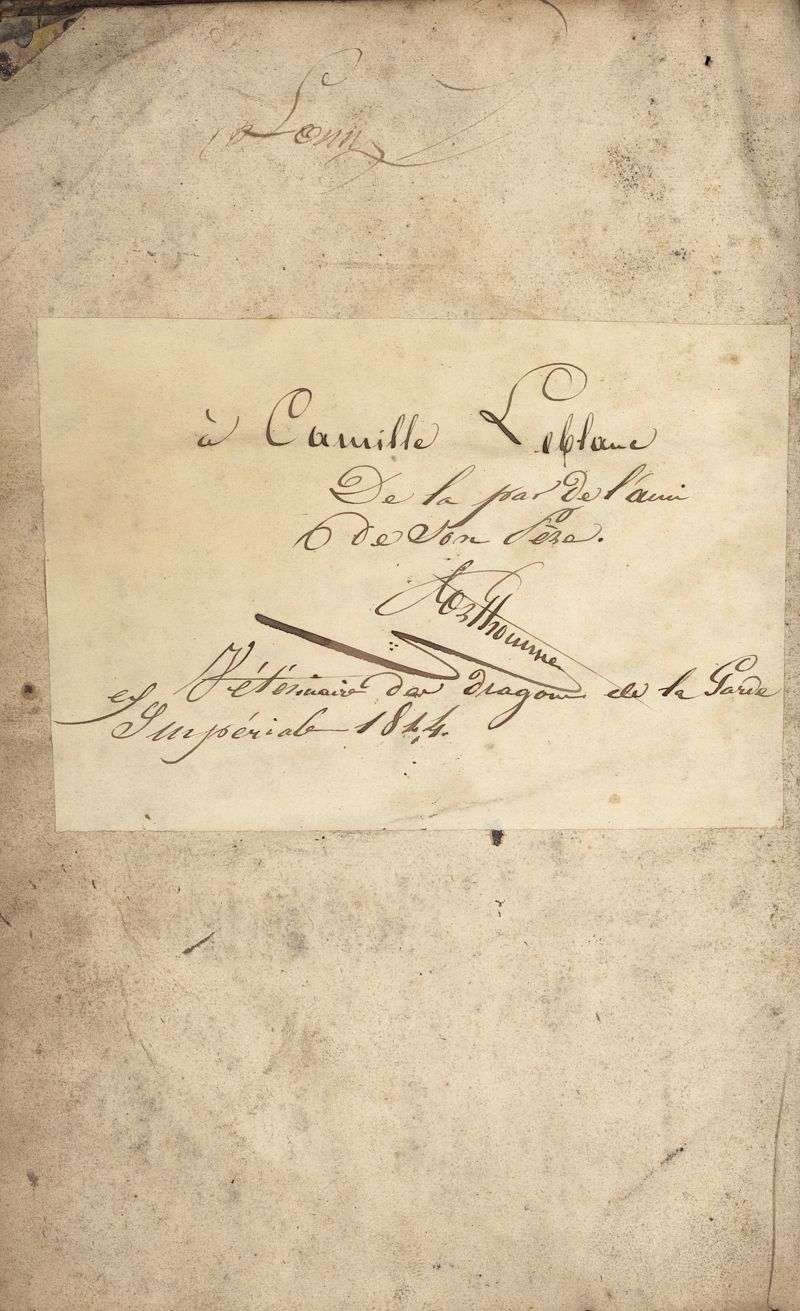 à Camille Leblanc
De la par de l'ami
de Son Père.
ex Vétérinaire des dragons de la Garde
Impériale 1844.